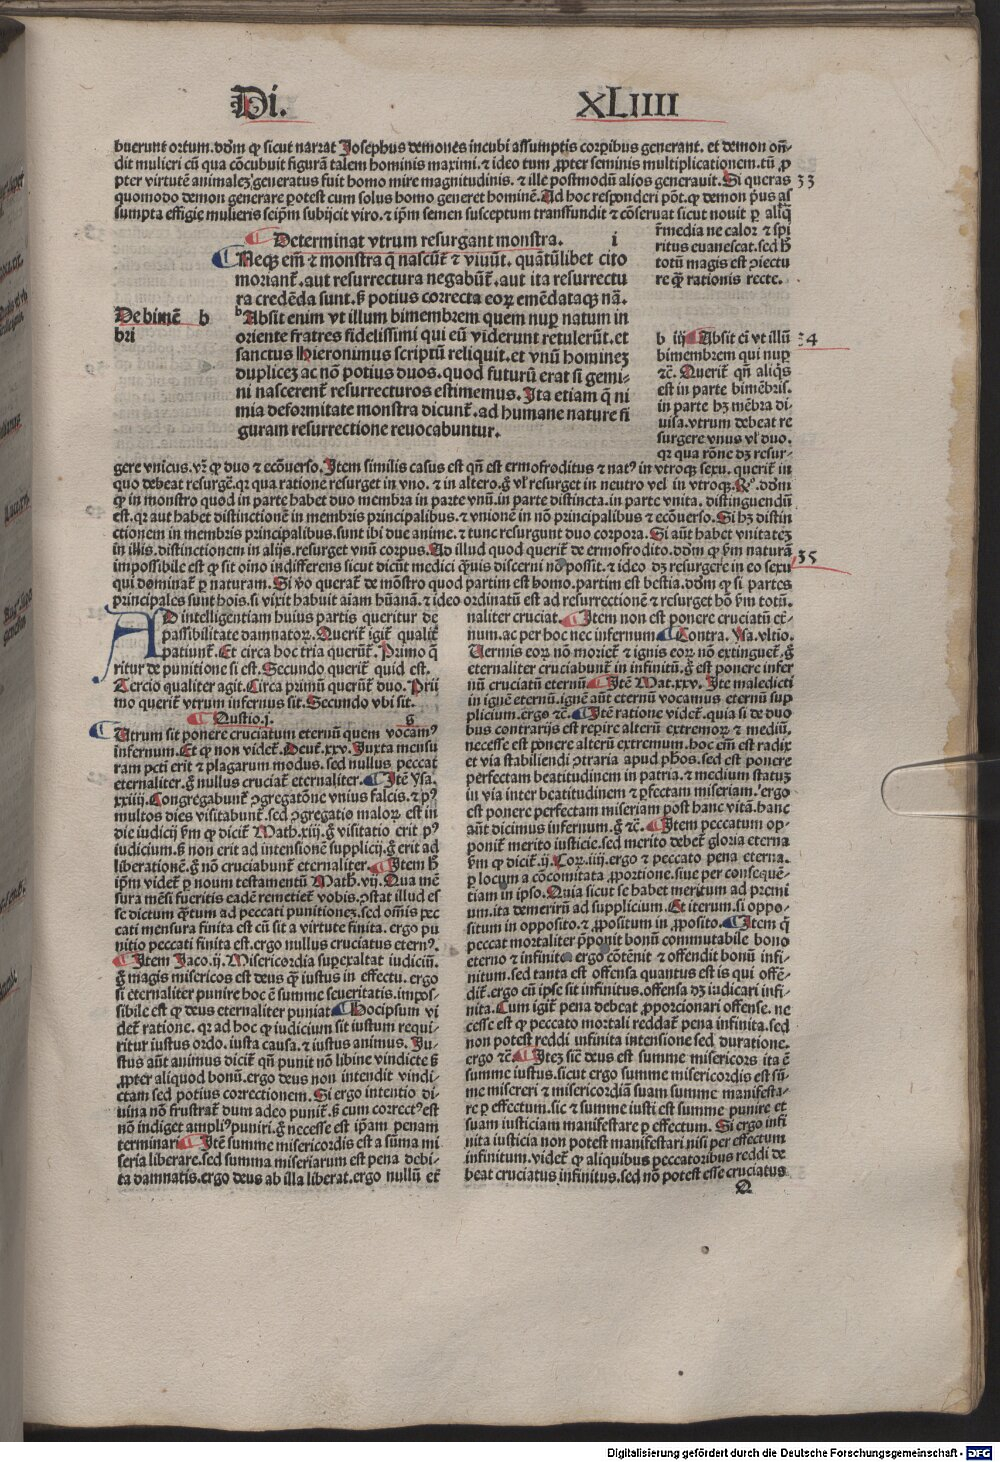 Di. XLIIII
buerunt ortum.dōm ꝙ sicut narrat Josephus demones incubi assumptis corꝑibus generant. et demon oñ-
dit mulieri cū qua cōcubuit figurā talem hominis maximi.⁊ ideo tum ꝓpter seminis multiplicationem.tū ꝓ
pter virtutē animalez generatus fuit homo mire magnitudinis. ⁊ ille postmodū alios generauit. Si queras 33
quomodo demon generare potest cum solus homo generet hominē. Ad hoc responderi pōt.ꝙ demon pͥus as
sumpta effigie mulieris seipm̄ subijcit viro. ⁊ ipm̄ semen susceptum transfundit ⁊ cōseruat sicut nouit ꝑ aliq̄
r̄media ne calor ⁊ spi
ritus euanescat. sed h̄
totū magis est ꝯiectu
re qᷓꝫ rationis recte.
Determinat vtrum resurgant monstra. i
Neqꝫ em̄ ⁊ monstra q̄ nascūt᷑ ⁊ viuūt. quātūlibet cito
moriant᷑.aut resurrectura negabūt᷑.aut ita resurrectu
ra credēda sunt.ſꝫ potius correcta eoꝝ emēdataqꝫ nā.
De bimē b
bri
b Absit enim vt illum bimembrem quem nuꝑ natum in
oriente fratres fidelissimi qui eū viderunt retulerūt.et
sanctus Hieronimus scriptū reliquit.et vnū hominez
duplicez ac nō potius duos.quod futurū erat si gemi-
ni nascerent᷑ resurrecturos estimemus. Ita etiam q̄ ni
mia deformitate monstra dicunt᷑.ad humane nature fi
guram resurrectione reuocabuntur.
b iij Absit eī vt illū 34
bimembrem qui nuꝑ
⁊c. Querit᷑ qn̄ aliq̄s
est in parte bimēbris.
in parte hꝫ mēbra di-
uisa.vtrum debeat re
surgere vnus vl̓ duo.
qꝛ qua rōne dꝫ resur-
gere vnicus. vr̄ ꝙ duo ⁊ ecōuerso. Item similis casus est qn̄ est ermofroditus ⁊ natꝰ in vtroqꝫ sexu. querit᷑ in
quo debeat resurgē.qꝛ qua ratione resurget in vno. ⁊ in altero.g̊ vl̓ resurget in neutro vel in vtroqꝫ. Rº. dōm
ꝙ in monstro quod in parte habet duo membra in parte vnū.in parte distincta.in parte vnita. distinguendū
est.qꝛ aut habet distinctionē in membris principalibus.⁊ vnionē in nō principalibus ⁊ ecōuerso. Si hꝫ distin
ctionem in membris principalibus.sunt ibi due anime.⁊ tunc resurgunt duo corpora. Si aūt habet vnitatez
in illis.distinctionem in alijs.resurget vnū corpus. Ad illud quod querit᷑ de ermofrodito.dōm ꝙ ẜm naturā 35
impossibile est ꝙ sit oino indifferens sicut dicūt medici qͣuis discerni nō possit.⁊ ideo dꝫ resurgere in eo sexu
qui dominat᷑ ꝑ naturam. Si ꝟo querat᷑ de mōstro quod partim est homo.partim est bestia.dōm ꝙ si partes
principales sunt hois.si vixit habuit aīam hūanā.⁊ ideo ordinatū est ad resurrectionē ⁊ resurget hō ẜm totū.
AD intelligentiam huius partis queritur de
passibilitate damnatoꝝ. Querit᷑ igit᷑ qualit᷑
patiunt᷑. Et circa hoc tria querūt᷑. Primo q̄
ritur de punitione si est. Secundo querit᷑ quid est.
Tercio qualiter agit. Circa primū querūt᷑ duo. Pri
mo querit᷑ vtrum infernus sit. Secundo vbi sit.
Qustio.j. g
Utrum sit ponere cruciatum eternū quem vocamꝰ
infernum. Et ꝙ non videt᷑. Deut᷑.xxv. Juxta mensu
ram pcti erit ⁊ plagarum modus. sed nullus peccat
eternaliter.g̊ nullus cruciat᷑ eternaliter. Itē Ysa.
xxiiij. Congregabunt᷑ ꝯgregatōne vnius falcis.⁊ pꝰ
multos dies visitabunt᷑.sed ꝯgregatio maloꝝ est in
die iudicij ẜm ꝙ dicit᷑ Math.xiij.g̊ visitatio erit pꝰ
iudicium.ſꝫ non erit ad intensionē supplicij.g̊ erit ad
liberationē.g̊ nō cruciabunt᷑ eternaliter. Item h̄
ipm̄ videt᷑ ꝑ nouum testamentū Math.vij. Qua mē
sura mēsi fueritis eadē remetiet᷑ vobis.ꝯstat illud es
se dictum qͣtum ad peccati punitionez.sed om̄is pec
cati mensura finita est cū sit a virtute finita. ergo pu
nitio peccati finita est.ergo nullus cruciatus eternꝰ.
Item Jaco.ij. Misericordia suꝑexaltat iudiciū.
g̊ magis misericos est deus qͣꝫ iustus in effectu. ergo
si eternaliter punire hoc ē summe seueritatis.impos-
sibile est ꝙ deus eternaliter puniat Hocipsum vi
det᷑ ratione. qꝛ ad hoc ꝙ iudicium sit iustum requi-
ritur iustus ordo. iusta causa.⁊ iustus animus. Iu-
stus aūt animus dicit᷑ qn̄ punit nō libine vindicte ſꝫ
ꝓpter aliquod bonū.ergo deus non intendit vindi-
ctam sed potius correctionem. Si ergo intentio di-
uina nō frustrat᷑ dum adeo punit᷑.ſꝫ cum correctꝰ est
nō indiget ampliꝰ puniri.g̊ necesse est ip̄am penam
terminari Itē summe misericordis est a sūma mi
seria liberare.sed summa miseriarum est pena debi-
ta damnatis.ergo deus ab illa liberat.ergo nullū et᷑
naliter cruciat. Item non est ponere cruciatū et᷑-
num.ac per hoc nec infernum Contra. Ysa.vltio.
Vermis eoꝝ nō moriet᷑ ⁊ ignis eoꝝ nō extinguet᷑.g̊
eternaliter cruciabunt᷑ in infinitū.g̊ est ponere infer
nū cruciatū eternū Itē Mat.xxv. Ite maledicti
in ignē eternū.ignē aūt eternū vocamus eternū sup
plicium.ergo ⁊c̄. Itē ratione videt᷑.quia si de duo
bus contrarijs est reꝑire alterū extremoꝝ ⁊ mediū.
necesse est ponere alterū extremum.hoc em̄ est radix
et via stabiliendi ꝯtraria apud phos.sed est ponere
perfectam beatitudinem in patria.⁊ medium statuz
in via inter beatitudinem ⁊ ꝑfectam miseriam.'ergo
est ponere perfectam miseriam post hanc vitā.hanc
aūt dicimus infernum.g̊ ⁊c̄. Item peccatum op-
ponit᷑ merito iusticie.sed merito debet᷑ gloria eterna
ẜm ꝙ dicit᷑.ij. Coꝝ.iiij.ergo ⁊ peccato pena eterna.
ꝑ locum a cōcomitata ꝓportione.siue per consequē-
tiam in ipso. Quia sicut se habet meritum ad premi
um.ita demeritū ad supplicium. Et iterum.si oppo-
situm in opposito.⁊ ꝓpositum in ꝓposito. Item q̄
peccat mortaliter p̄ponit bonū commutabile bono
eterno ⁊ infinito ergo cōtēnit ⁊ offendit bonū infi-
nitum.sed tanta est offensa quantus est is qui offē-
dit᷑.ergo cū ipse sit infinitus.offensa dꝫ iudicari infi-
nita. Cum igit᷑ pena debeat ꝓporcionari offense. ne
cesse est ꝙ peccato mortali reddat᷑ pena infinita.sed
non potest reddi infinita intensione sed duratione.
ergo ⁊c̄. Itez sic̄ deus est summe misericors ita ē
summe iustus.sicut ergo summe misericordis est sū-
me misereri ⁊ misericordiā suam summe manifesta-
re ꝑ effectum.sic ⁊ summe iusti est summe punire et
suam iusticiam manifestare ꝑ effectum. Si ergo infi
nita iusticia non potest manifestari nisi per effectum
infinitum.videt᷑ ꝙ aliquibus peccatoribus reddi de
beat cruciatus infinitus.sed nō potest esse cruciatus
Q
Digitalisierung gefördert durch die Deutsche Forschungsgemeinschaft - DFG